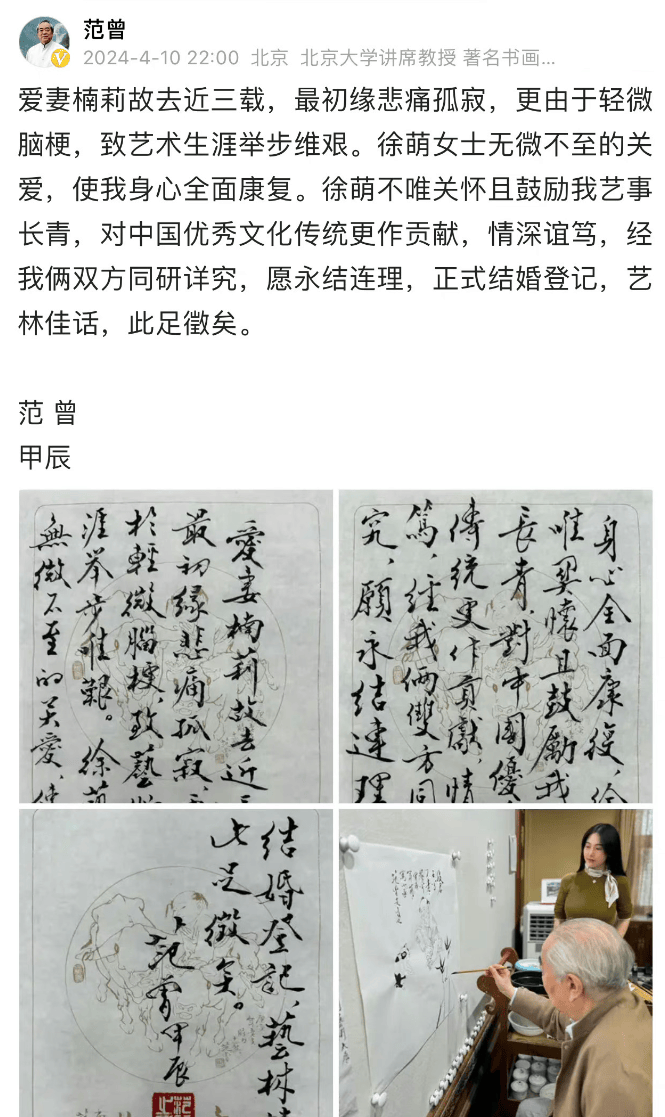 范曾
2024-4-10 22:00 北京 北京大学讲席教授 著名书画...
爱妻楠莉故去近三载，最初缘悲痛孤寂，更由于轻微
脑梗，致艺术生涯举步维艰。徐萌女士无微不至的关
爱，使我身心全面康复。徐萌不唯关怀且鼓励我艺事
长青，对中国优秀文化传统更作贡献，情深谊笃，经
我俩双方同研详究，愿永结连理，正式结婚登记，艺
林佳话，此足徵矣。
范 曾
甲辰
愛妻楠莉故去近三
最初缘悲痛孤寂，
於輕微腦梗，致藝
涯举步维艱。徐萌
無微不至的关愛，使
身心全面康復，徐
唯関懷且鼓勵我
長青，對中國優
傳統更作貢獻，情
篤，經我俩雙方同
究，願永结連理
结婚登记，藝林
此足徵矣。
范曾甲辰